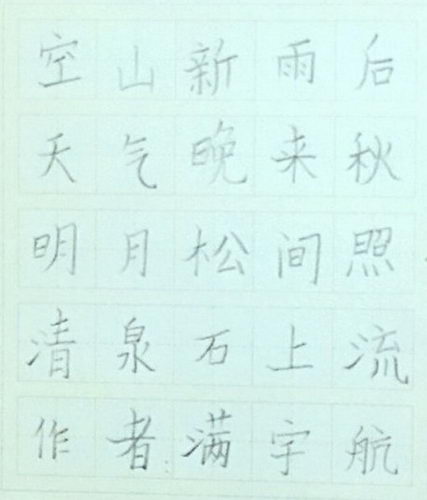 空山新雨后
天气晚来秋
明月松间照
清泉石上流
作者满宇航